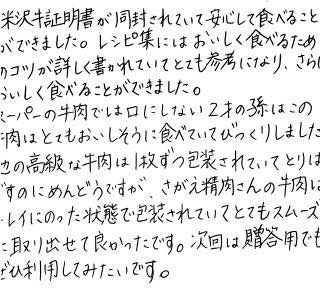 米沢牛証明書が同封されていて安心して食べること
ができました。レシピ集にはおいしく食べるため
のコツが詳しく書かれていてとても参考になり、さら
おいしく食べることができました。
スーパーの牛肉では口にしない2才の孫はこの
肉はとてもおいしそうに食べていてびっくりしました
他の高級な牛肉は1枚ずつ包装されていてとりは
ずすのにめんどうですが、さがえ精肉さんの牛肉は
トレイにのった状態で包装されていてとてもスムーズ
に取り出せて良かったです。次回は贈答用でも
ぜひ利用してみたいです。